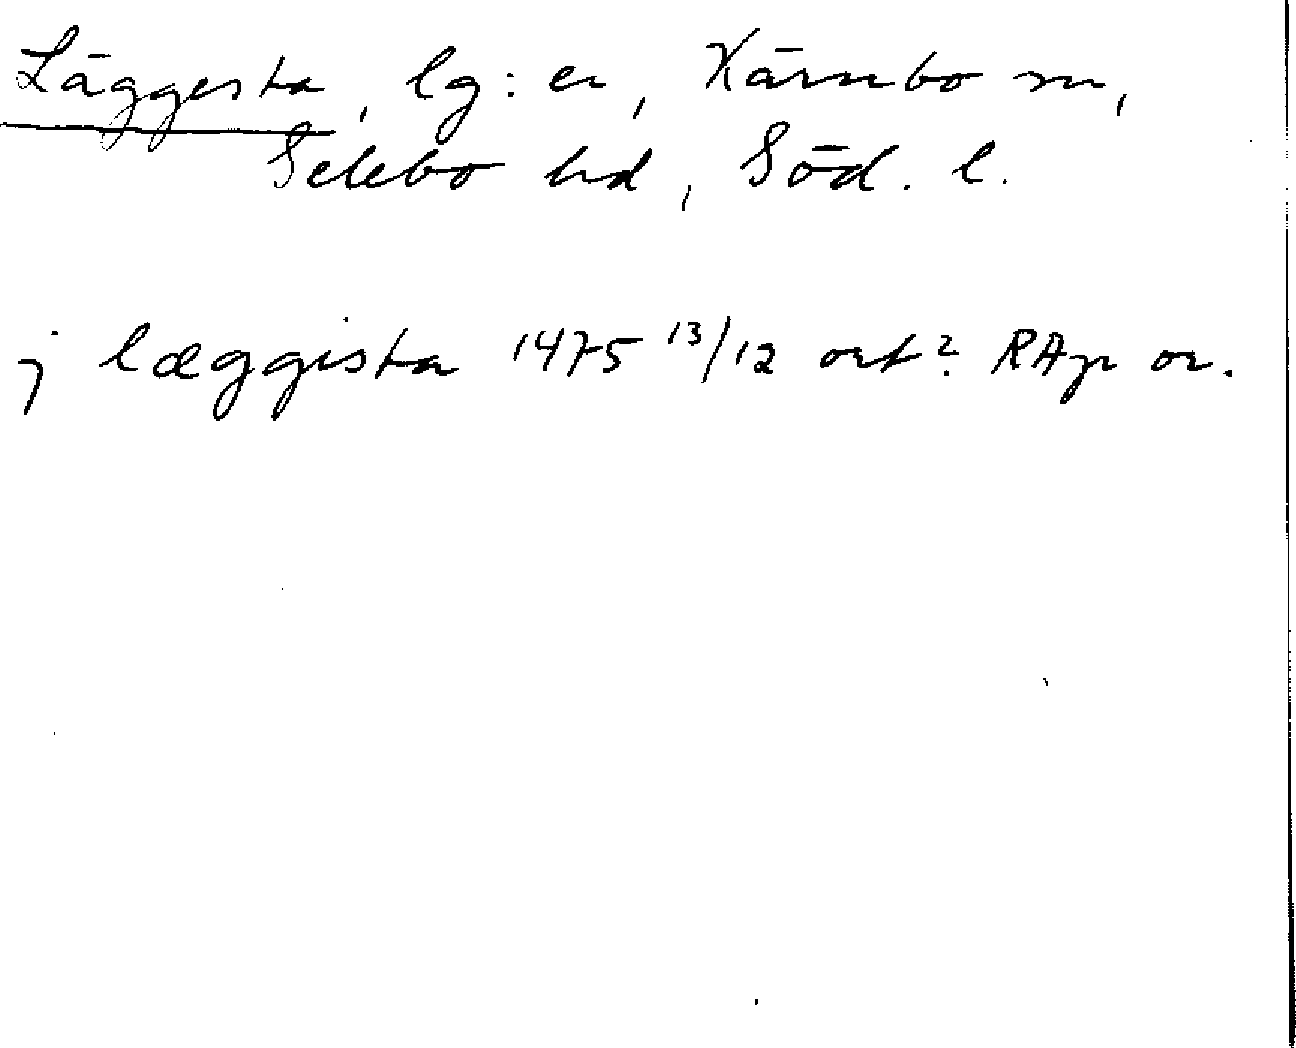 Läggesta, lg:er, Kärnbo sn,
Selebo hd, Söd. l.
j læggista 1475 13/12 ort? RAp or.